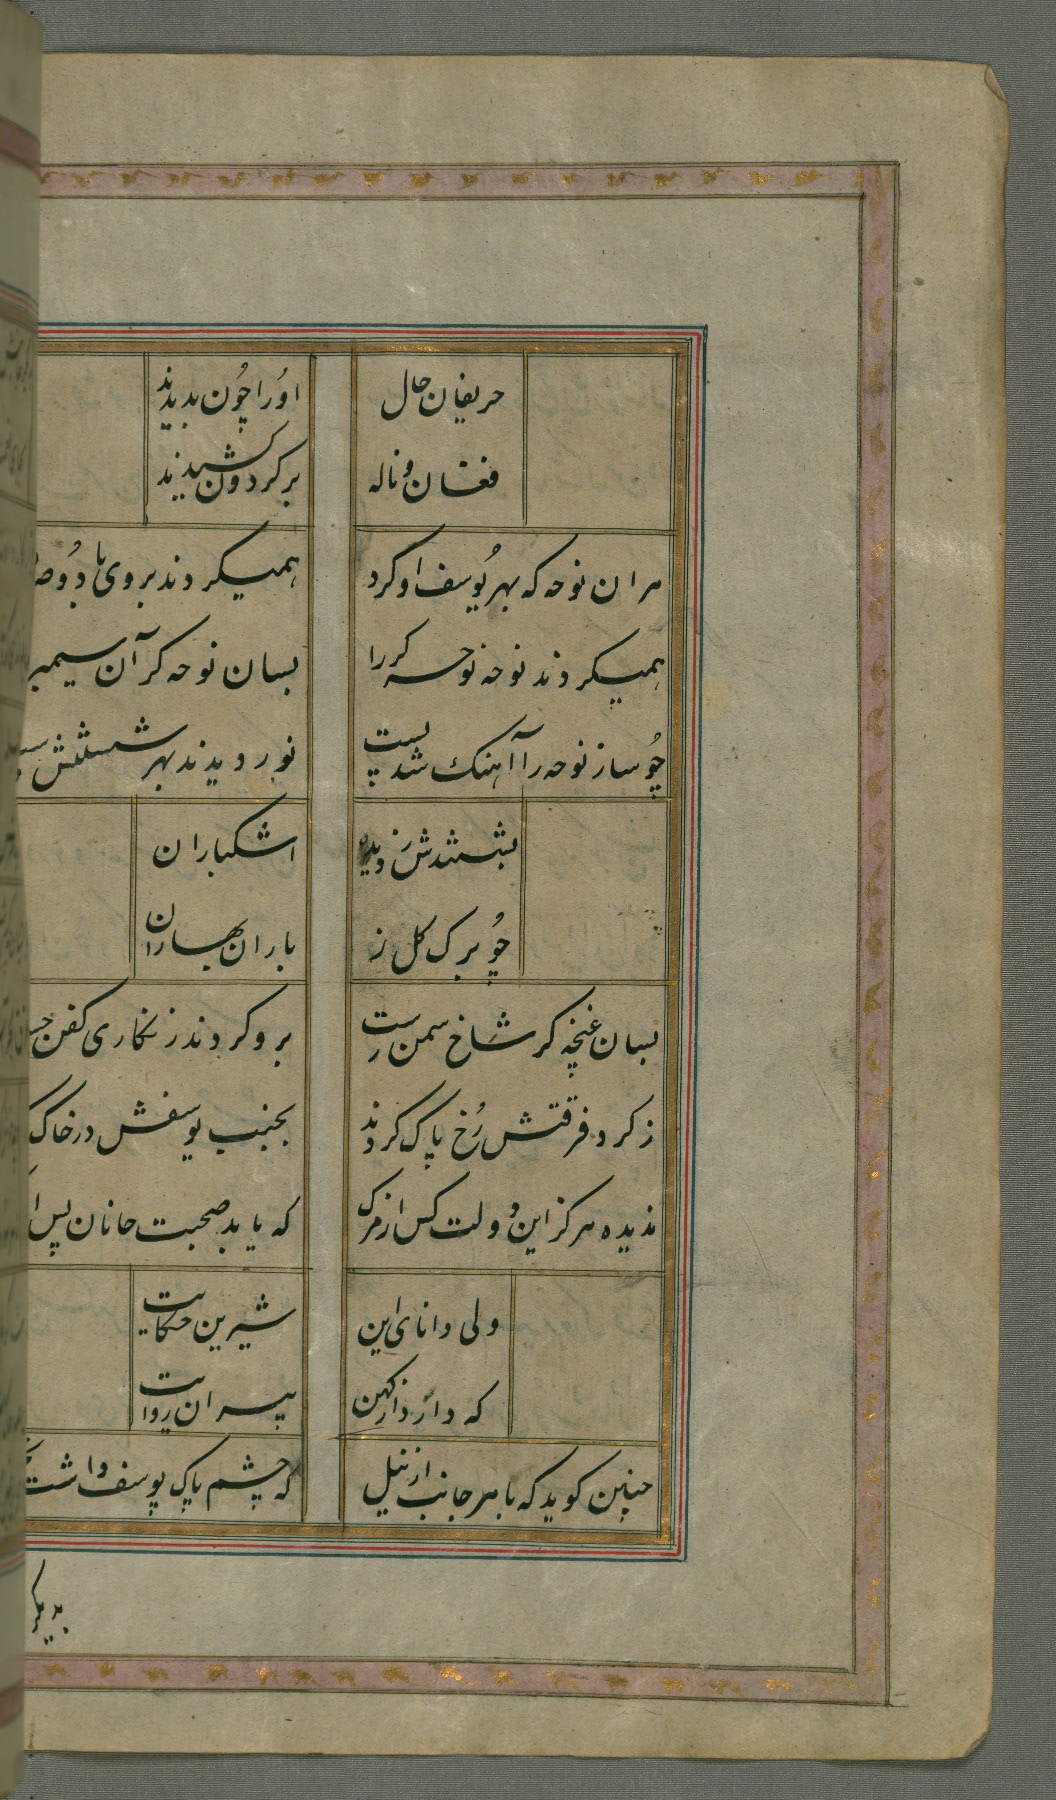 حریفان حال اوُرا چُون بدیدند
فغان و ناله بر کردون کشیدند
هر ان نوحه که بهر یُوسف او کرد همیکردند بر وی با دوُصد
همیکردند نوحه نوحه کر را بسان نوحه کر آن سیمبر
چُو ساز نوحه را آهنک شد پست نوردیدند بهر شستنش
بشستندش ز دیده اشکباران
چُو برک کل ز باران بهاران
بسان غنچه کز شاخ سمن رست برو کردند زنکاری کفن
ز کرد فرقتش رُخ پاک کردند بجنب یوسفش در خاک
ندیده هرکز این دولت کس از مرک که یابد صحبت جانان پس
ولی دانای این شیرین حکایت
که دارد از کهن پیران روایت
چنین کوید که با هر جانب از نیل که چشم پاک یوسف داشت
بدیکر